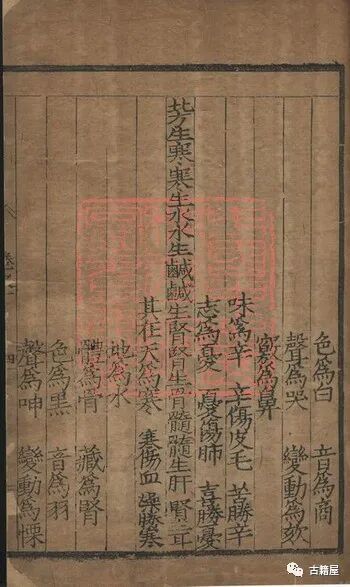 色為白　音為商
聲為哭　變動為欬
竅為鼻
味為辛　辛傷皮毛　苦勝辛
志為憂　憂傷肺　喜勝憂
北方生寒寒生水水生鹹鹹生腎腎生骨髓髓生肝　腎主耳
其在天為寒　寒傷血　燥勝寒
地為水
體為骨　藏為腎
色為黑　音為羽
聲為呻　變動為慄
古籍屋